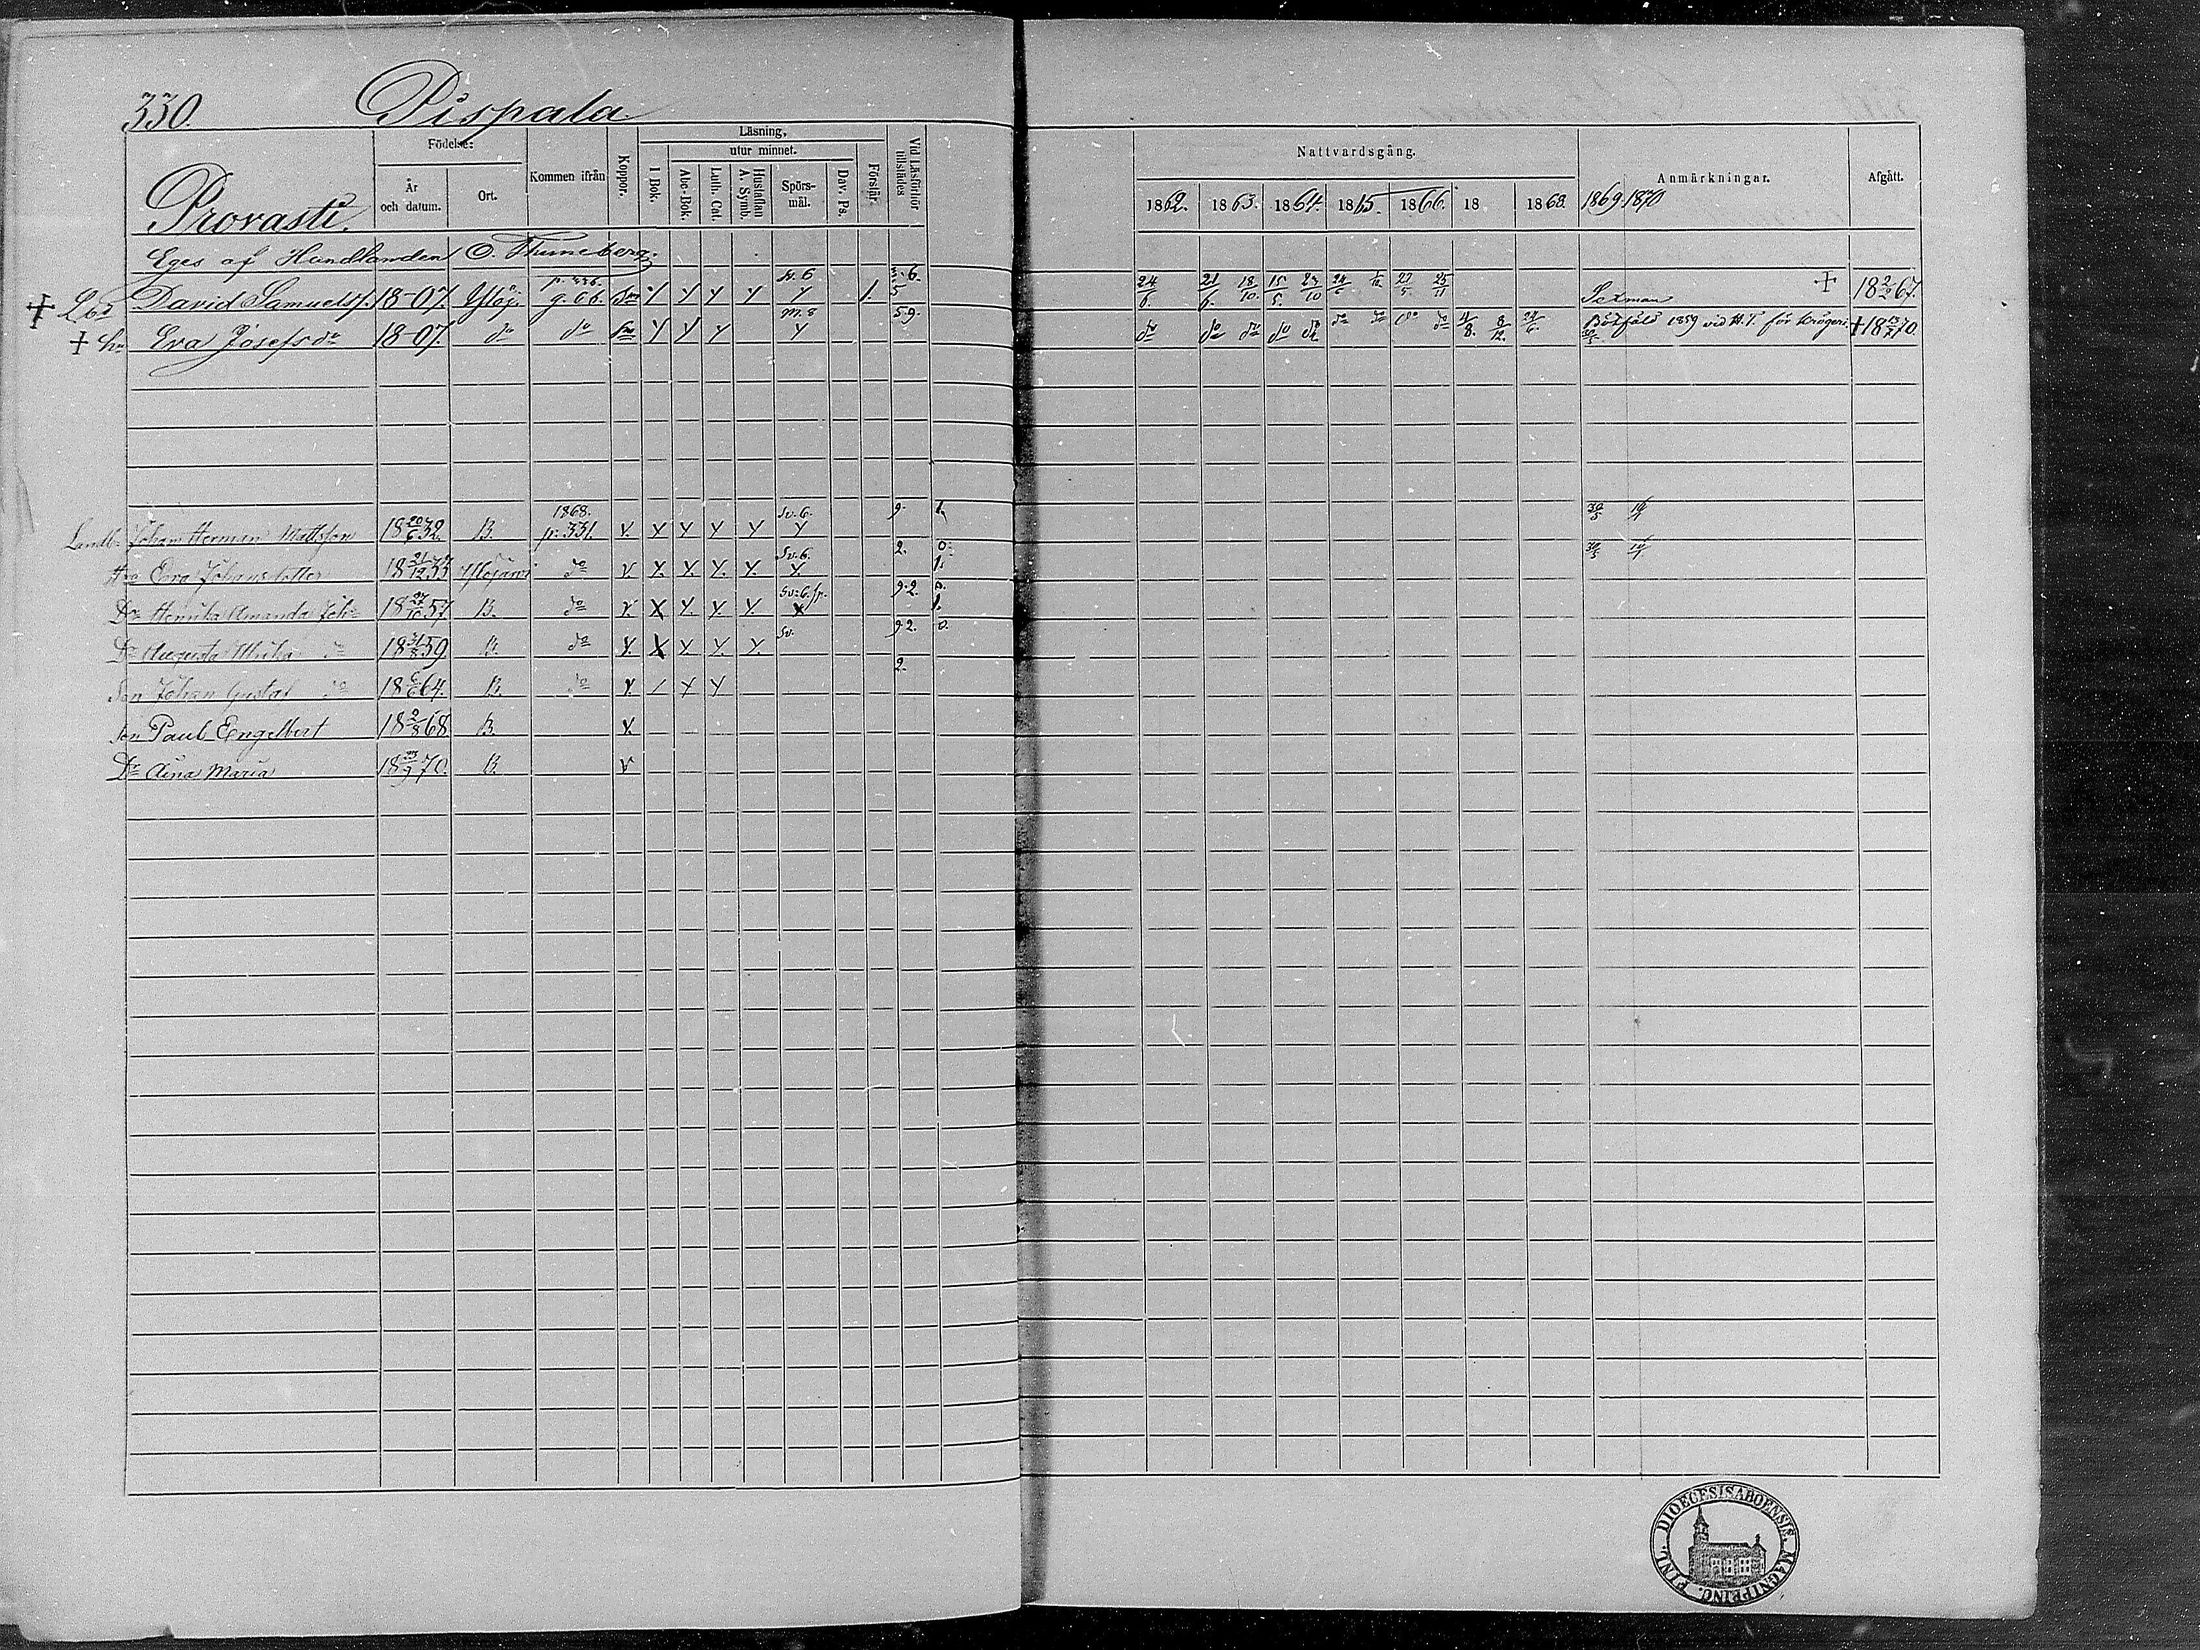 330. Pispala
Provasti.
Födelse:
År och datum.
Ort.
Kommen ifrån
Koppor.
Läsning,
I Bok.
utur minnet.
Abc-Bok.
Luth. Cat.
Hustaflan A. Symb.
Spörs-mål.
Dav. Ps.
Förstår.
Vid Läsförhör tillstädes
Nattvardsgång.
1862. 1863. 1864. 1865. 1866. 18 1868. 1869. 1870
Anmärkningar.
Afgått.
Eges af Handlanden O. Thuneberg.
+ Lbd David Samuelss. 18-07. Ylöj. p. 336. g. 66. Y Y Y Y H. 6 Y 1. 3. 6. 5 24/6. 21/6. 18/10. 15/5. 23/10 24/6 27/5. 25/11 Sexman + 18 2/2 67.
+ Eva Josefsdr 18-07. do do Y Y Y m. 8 Y 5 9. do do do do do do do do 4/8. 8/12. 1859 vid H.T. för krögeri + 70.
Landb. Johan Herman Mattsson 18 20/6 32. B. 1868. p. 331. v. x Y Y Y Sv. 6. Y 9. 1. 30/5
Eva Johansdotter 18 21/12 33 Ylöjärvi do v. Y. Y. Y. Y. Sv. 6. Y. 2. 0. 1. 30/5
Dr Henrika Amanda 18 57. B. do v. X Y. Y. Y. Sv. 6. x 9. 2. 1.
Dr Augusta Ulrika do 18 59. B. do v. X Y Y. Y. Sv. 9 2. 0.
Son Johan Gustaf do 18 6/6 64. B. do v. / Y Y 2.
Son Paul Engelbert 18 2/8 68 B. v.
Dr Aina Maria 18 70. B. v
DIOECESIS ABOENSIS. MAGN. PRINC. FINL.